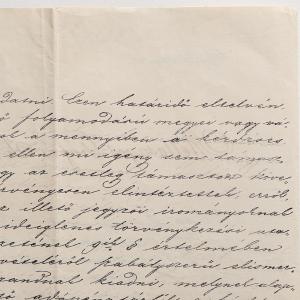 datni. Ezen határidő eltelvén
ő folyamodású megyei vagy vá-
a mennyiben a kérdéses
ellen mi igény sem támasz
gy az esetleg támasztott köve-
vényesen elintéztettek, erről
illető jegyzői irományoknak
ideiglenes törvénykezési sza-
zetének 9ik § értelmében
vételéről szabályszerű elismer-
andnak kiadni, melynek alap-